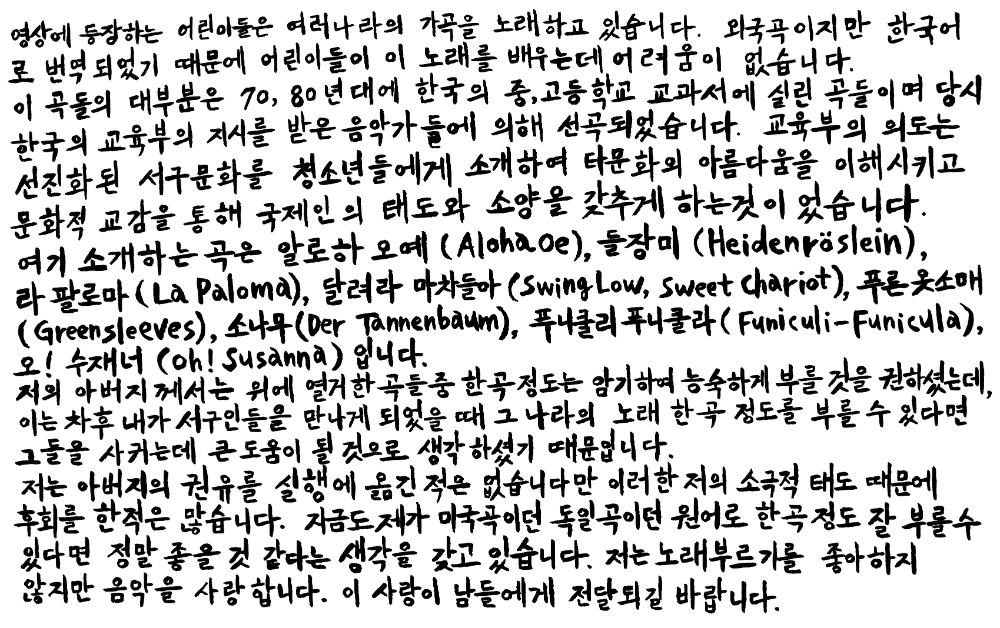 영상에 등장하는 어린이들은 여러나라의 가곡을 노래하고 있습니다. 외국곡이지만 한국어
로 번역되었기 때문에 어린이들이 이 노래를 배우는데 어려움이 없습니다.
이 곡들의 대부분은 70, 80년대에 한국의 중,고등학교 교과서에 실린 곡들이며 당시
한국의 교육부의 지시를 받은 음악가들에 의해 선곡되었습니다. 교육부의 의도는
선진화된 서구문화를 청소년들에게 소개하여 타문화의 아름다움을 이해시키고
문화적 교감을 통해 국제인의 태도와 소양을 갖추게 하는것이었습니다.
여기 소개하는 곡은 알로하 오에 (Aloha Oe), 들장미 (Heidenröslein),
라 팔로마 (La Paloma), 달려라 마차들아 (Swing Low, Sweet Chariot), 푸른 옷소매
(Greensleeves), 소나무 (Der Tannenbaum), 푸니쿨리 푸니쿨라 (Funiculi-Funicula),
오! 수재너 (Oh! Susanna) 입니다.
저의 아버지께서는 위에 열거한 곡들중 한곡정도는 암기하여 능숙하게 부를 것을 권하셨는데,
이는 차후 내가 서구인들을 만나게 되었을 때 그 나라의 노래 한 곡 정도를 부를 수 있다면
그들을 사귀는데 큰 도움이 될 것으로 생각하셨기 때문입니다.
저는 아버지의 권유를 실행에 옮긴 적은 없습니다만 이러한 저의 소극적 태도 때문에
후회를 한적은 많습니다. 지금도 제가 미국곡이던 독일곡이던 원어로 한곡정도 잘 부를수
있다면 정말 좋을 것 같다는 생각을 갖고 있습니다. 저는 노래부르기를 좋아하지
않지만 음악을 사랑합니다. 이 사랑이 남들에게 전달되길 바랍니다.